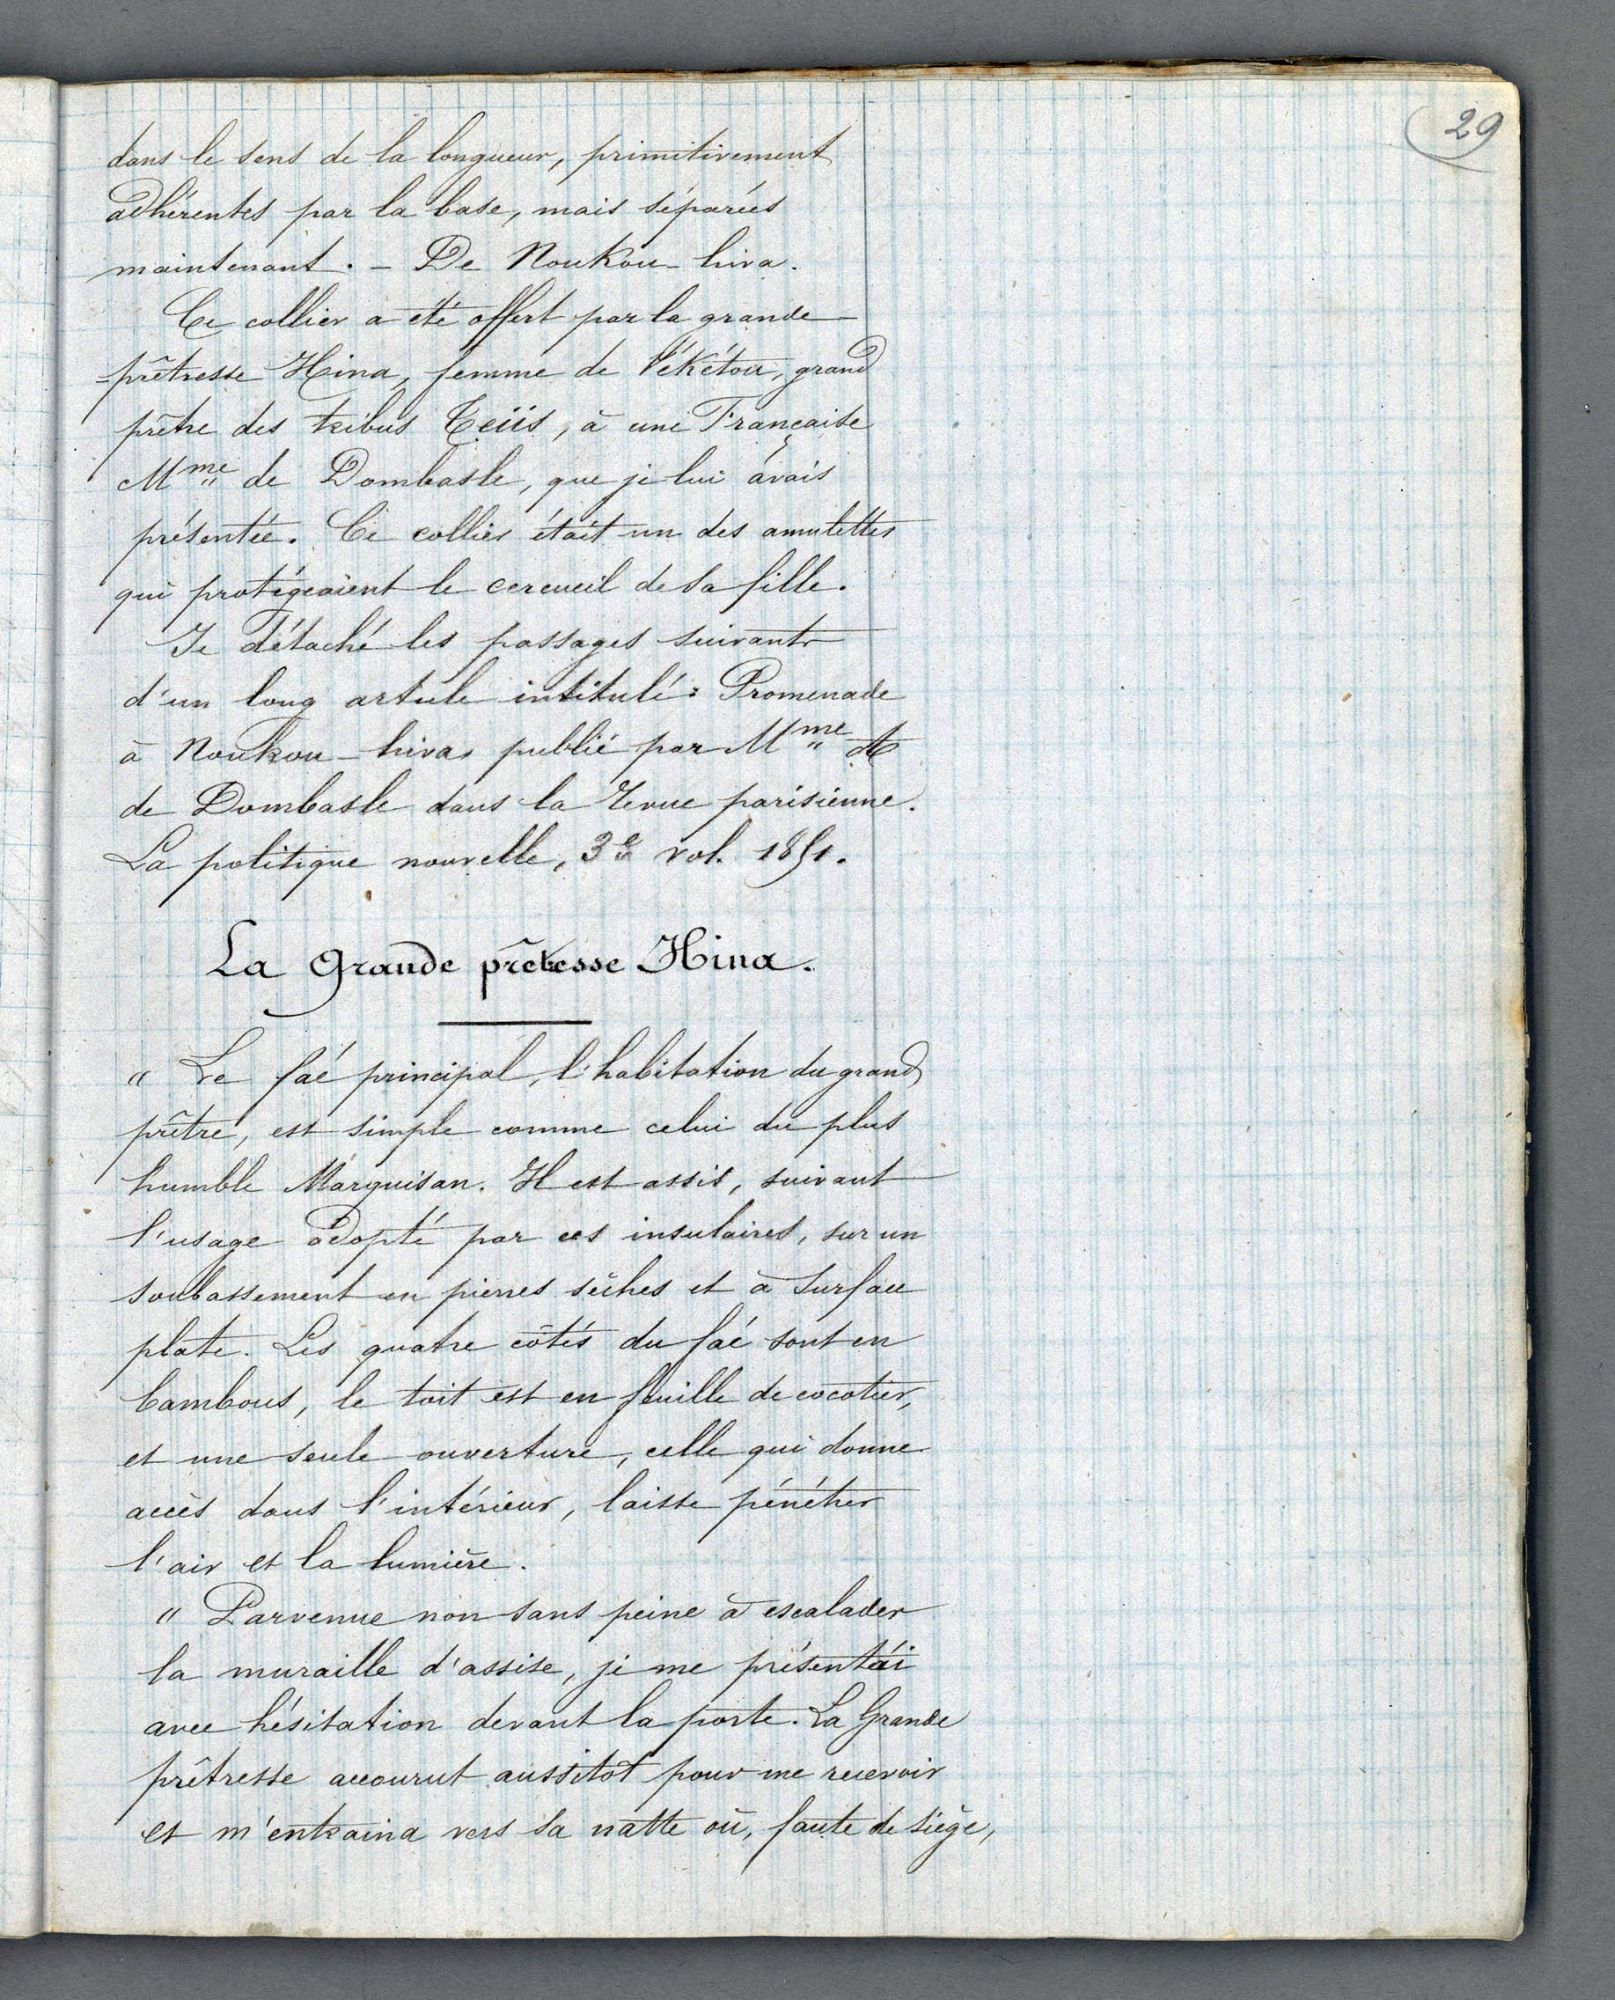 29
dans le sens de la longueur, primitivement
adhérentes par la base, mais séparées
maintenant. – De Noukou-hiva.
Ce collier a été offert par la grande-
-prêtresse Hina, femme de Vékétou, grand
prêtre des tribus Teiis, à une Française
Mme de Dombasle, que je lui avais
présentée. Ce collier était un des amulettes
qui protégeaient le cercueil de sa fille.
Je détaché les passages suivants
d'un long article intitulé: Promenade
à Noukou-hiva, publié par Mme A
de Dombasle dans la Revue parisienne.
La politique nouvelle, 3e vol. 1851.
La Grande prêtresse Hina.
" Le faé principal, l'habitation du grand
prêtre, est simple comme celui du plus
humble Marquisan. Il est assis, suivant
l'usage adopté par ces insulaires, sur un
soubassement en pierres sèches et à surface
plate. Les quatre côtés du faé sont en
bambous, le toit est en feuille de cocotier,
et une seule ouverture, celle qui donne
accès dans l'intérieur, laisse pénétrer
l'air et la lumière.
" Parvenue non sans peine à escalader
la muraille d'assise, je me présentai
avec hésitation devant la porte. La Grande
prêtresse accourut aussitôt pour me recevoir
et m'entraina vers sa natte où, faute de siège,